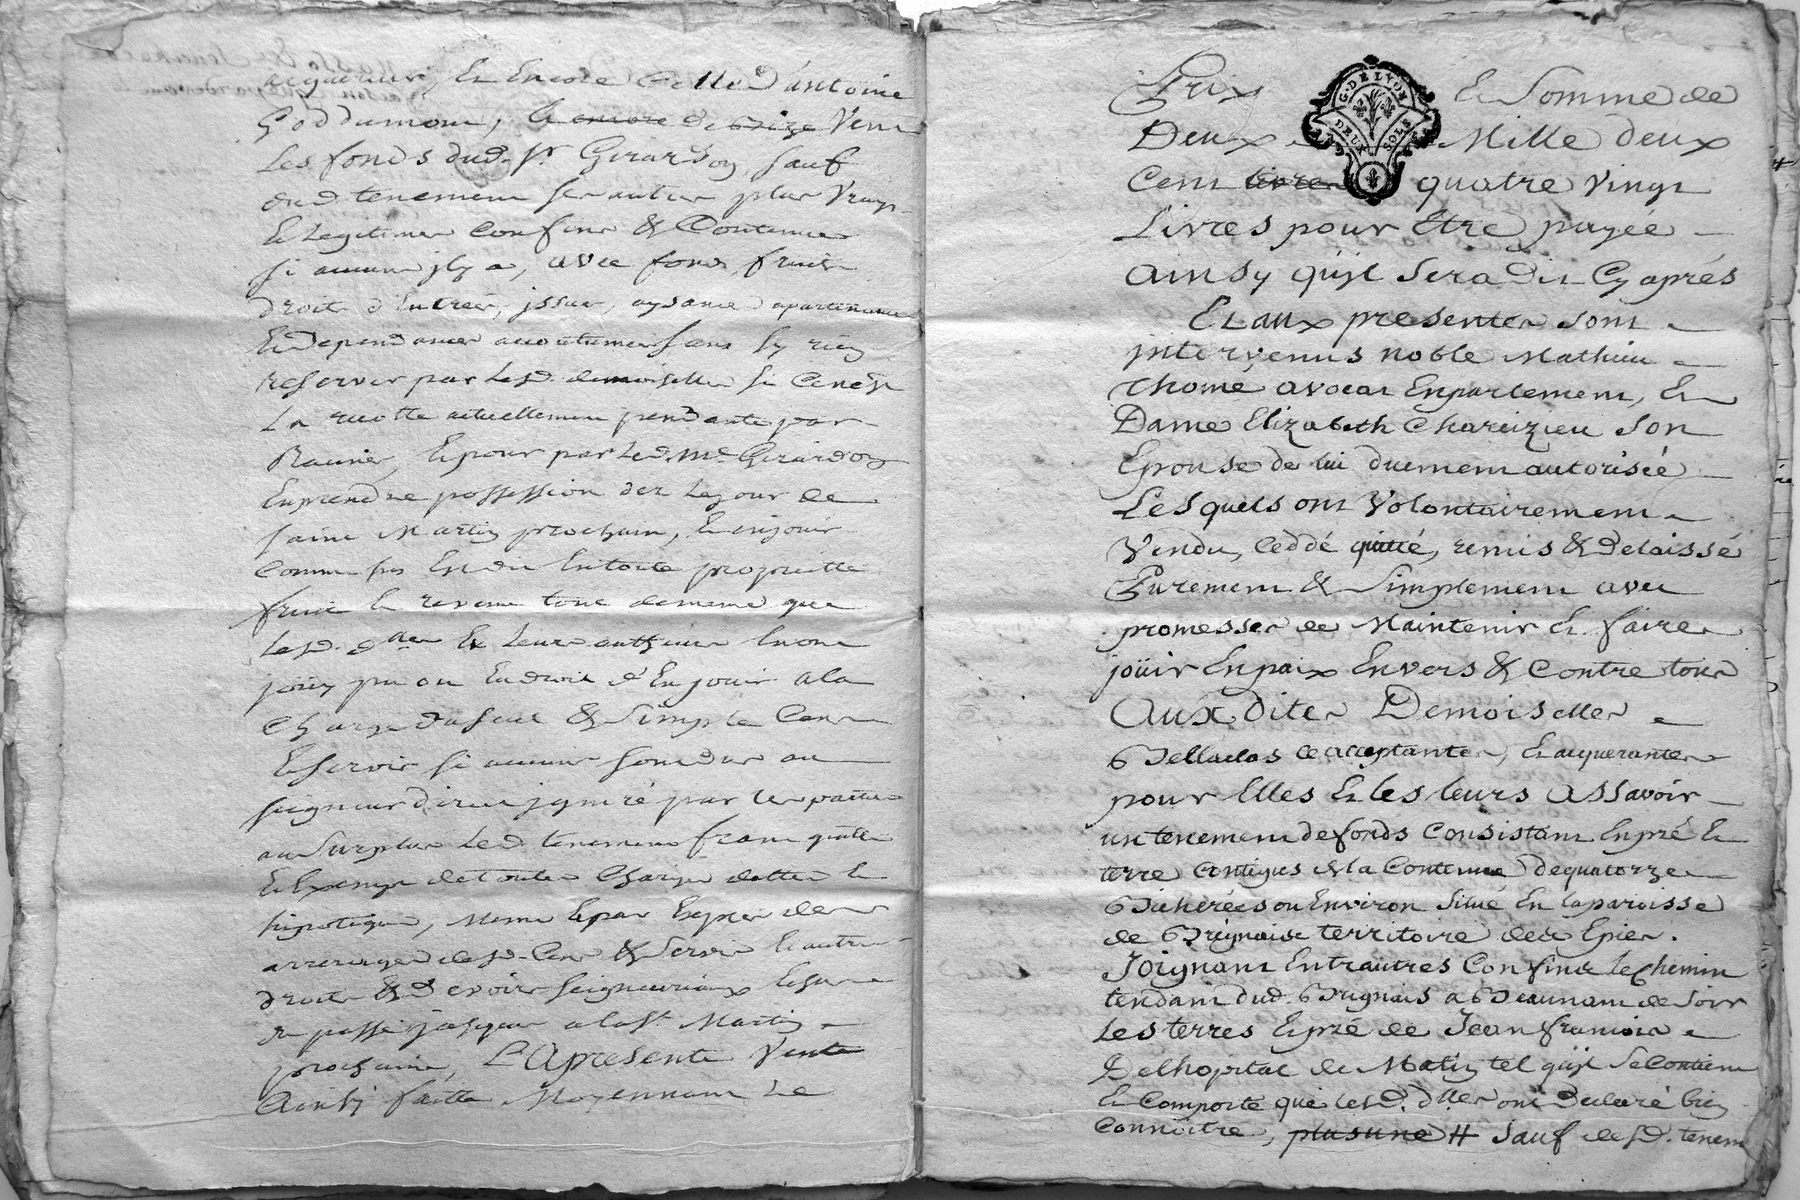 acquereur, Et Encore Celle d'antoine
Goddumont, le encore de Brize Vent
Les fonds dud. Sr. Girardon sauf
dud tenement ses autres plus Vrays
Et Legitimes Confins & Contenues
si aucune jl y a, avec fonds, fruits
droits d'Entrées, jssues, aysances apartenances
Et Dependances accoutumés sans sy rien
reserver par Lesd. demoiselles si Ce nest
La recolte actuellement pendante par
Racines, Et pour par Led. Me Girardon
En prendre possession dez Le jour de
saint Martin prochain, Et en jouir
Comme Est dit En toute proprietté
fruits Et revenu tout de meme que
Lesd. dlles Et Leurs autheurs En ont
jouy pu ou Eu droit d'En jouir a la
Charge du seul & simple Cens
Et servis si aucuns sont dus au
seigneur direct jgnoré par Les parties
au Surplus Led tenement franc quitte
Et Exempt de toutes Charges dettes Et
hipoteques, Meme Et par Exprès des
arrerages desd. Cens & Servis Et autres
droits & devoirs seigneuriaux Et sur
le passé jusques a la St Martin
prochaine, La presente Vente
Ainsy faitte Moyennant Le
G. DE LYON
DEUX SOLS
Prix Et Somme de
Deux Mille deux
Cent livres quatre Vingt
Livres pour Etre payée
ainsy qu'jl Sera Dit Cy aprés
Et aux presentes sont
jntervenus noble Mathieu
thomé avocat En parlement, Et
Dame Elizabeth Charezieu Son
Epouse de lui duement autorisée
Lesquels ont Volontairement
Vendu, Ceddé quitté, remis & Delaissé
Purement & Simplement avec
promesses de Maintenir Et faire
joüir En paix Envers & Contre tous
Aux dites Demoiselles
Belladas Et acceptantes, Et acquerantes
pour Elles Et les leurs Assavoir
un tenement de fonds Consistant En pré Et
terre Contigus de la Contenue De quatorze
Bicherées ou Environ Situé En la paroisse
de Brignais territoire des Epies.
Joignant Entr'autres Confins le Chemin
tendant dud. Brignais a Beaunant de Soir
Les terres Et pré de Jean francois
Delhopital de Matin tel qu'jl Se Contient
Et Comporte que lesd. dlles ont Declaré bien
Connoitre, plus une # Sauf desd. tenem